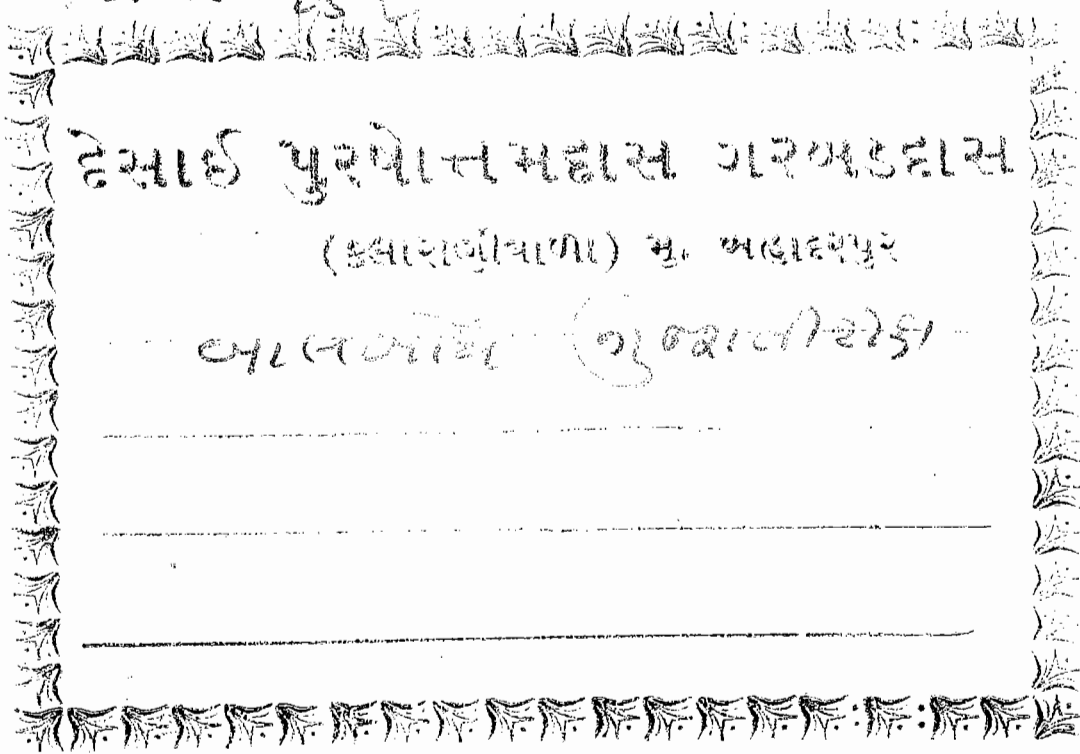 દેસાઈ પુરષોત્તમદાસ ગરબડદાસ
(કલારાણીવાળા) મુ. બહાદરપુર
બાલબોધ (ગુજરાતી ટીકા